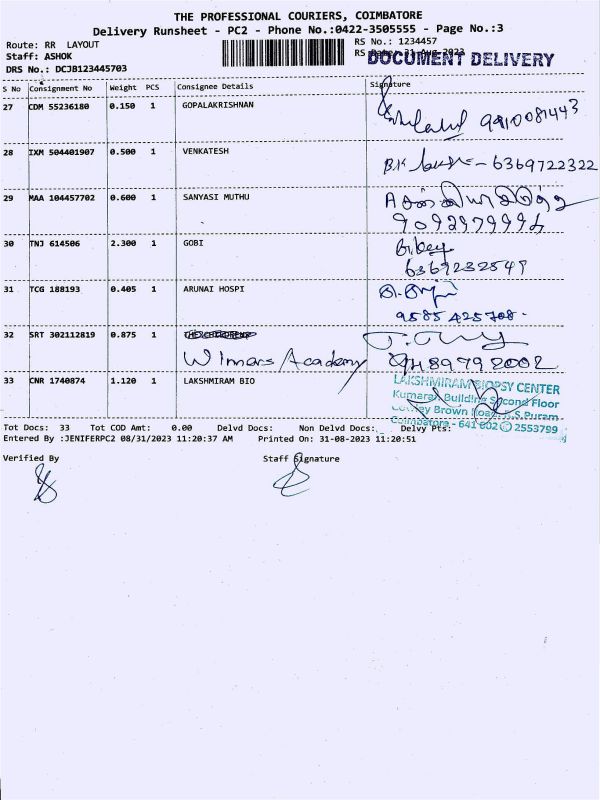 THE PROFESSIONAL COURIERS, COIMBATORE
Delivery Runsheet - PC2 - Phone No.:0422-3505555 - Page No.:3
Route: RR LAYOUT RS No.: 1234457
Staff: ASHOK RS Date: 31-Aug-2023
DOCUMENT DELIVERY
DRS No.: DCJB123445703
S No Consignment No Weight PCS Consignee Details Signature
27 CDM 55236180 0.150 1 GOPALAKRISHNAN
9910081443
28 IXM 504401907 0.500 1 VENKATESH
B.K - 6369722322
29 MAA 104457702 0.600 1 SANYASI MUTHU
9092979994
30 TNJ 614506 2.300 1 GOBI
6369232549
31 TCG 188193 0.405 1 ARUNAI HOSPI
9585425708.
32 SRT 302112819 0.875 1
Winners Academy 9489792002
33 CNR 1740874 1.120 1 LAKSHMIRAM BIO
LAKSHMIRAM BIOPSY CENTER
Kumaran Building Second Floor
Cowley Brown Road, R.S.Puram
Coimbatore - 641 002 ✆ 2553799
Tot Docs: 33 Tot COD Amt: 0.00 Delvd Docs: Non Delvd Docs: Delvy Pts:
Entered By :JENIFERPC2 08/31/2023 11:20:37 AM Printed On: 31-08-2023 11:20:51
Verified By Staff Signature